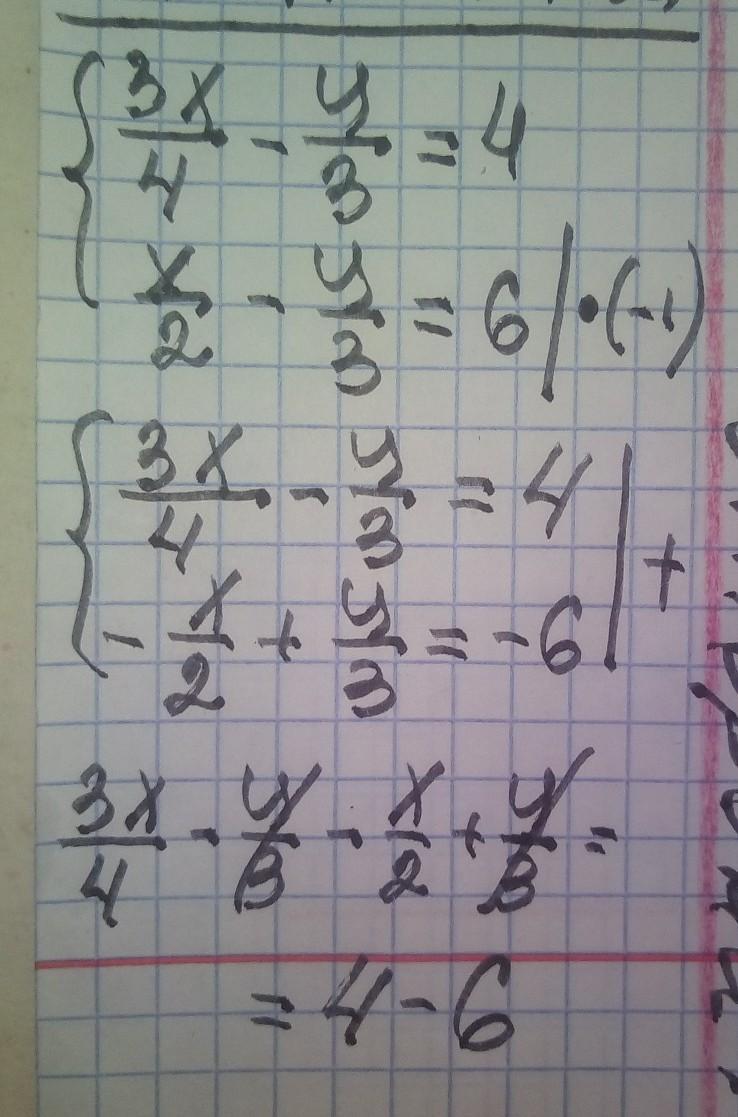 3x/4 - y/3 = 4
x/2 - y/3 = 6 | • (-1)
3x/4 - y/3 = 4
- x/2 + y/3 = -6 | +
3x/4 - y/3 - x/2 + y/3 =
= 4 - 6